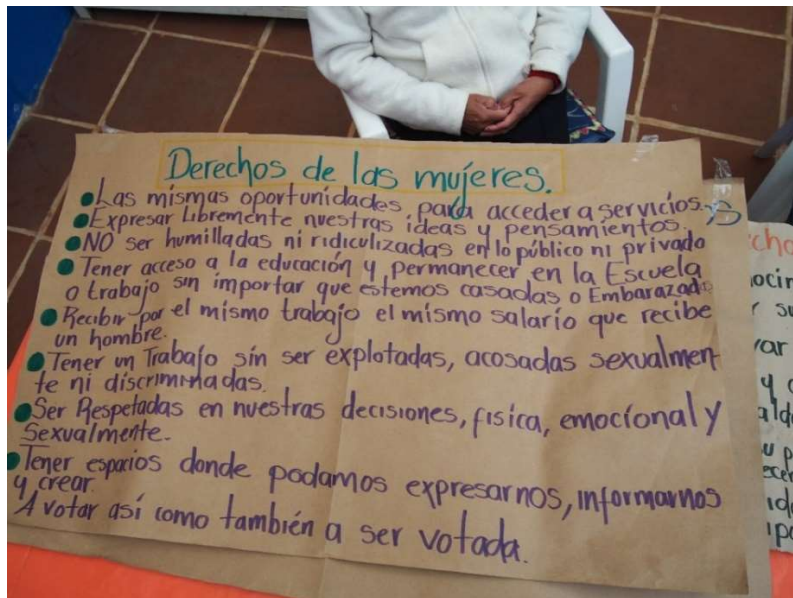 Derechos de las mujeres.
Las mismas oportunidades para acceder a servicios.
Expresar Libremente nuestras ideas y pensamientos.
NO ser humilladas ni ridiculizadas en lo público ni privado
Tener acceso a la educación y permanecer en la Escuela
o trabajo sin importar que estemos casadas o Embarazad
Recibir por el mismo trabajo el mismo salario que recibe
un hombre.
Tener un Trabajo sin ser explotadas, acosadas sexualmen-
te ni discriminadas.
Ser Respetadas en nuestras decisiones, fisica, emocional y
Sexualmente.
Tener espacios donde podamos expresarnos, informarnos
y crear.
A votar así como también a ser votada.